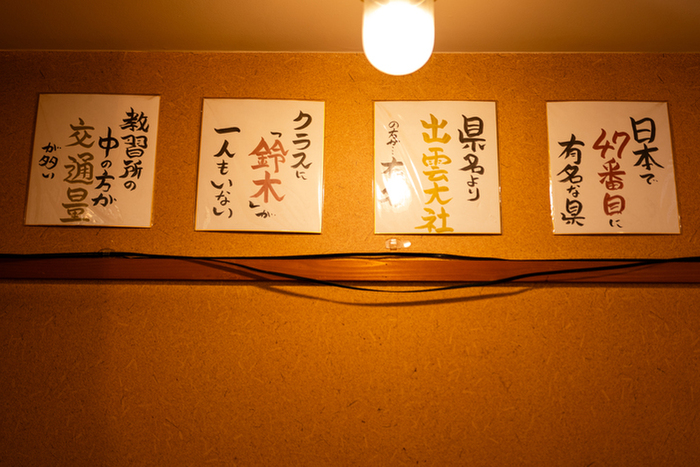 日本で
47番目に
有名な県
県名より
出雲大社
の方が…有名
クラスに
「鈴木」が
一人もいない
教習所の
中の方が
交通量
が多い